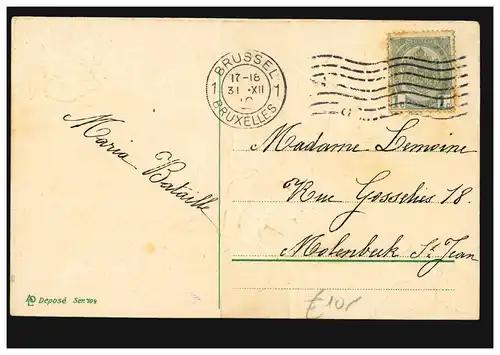 BRUSSEL
1 17-18 1
31 XII
BRUXELLES
Maria Bataille
Madame Lemoine
Rue Gosselies 18.
Molenbeek St Jean
Deposé Ser. 104
£10